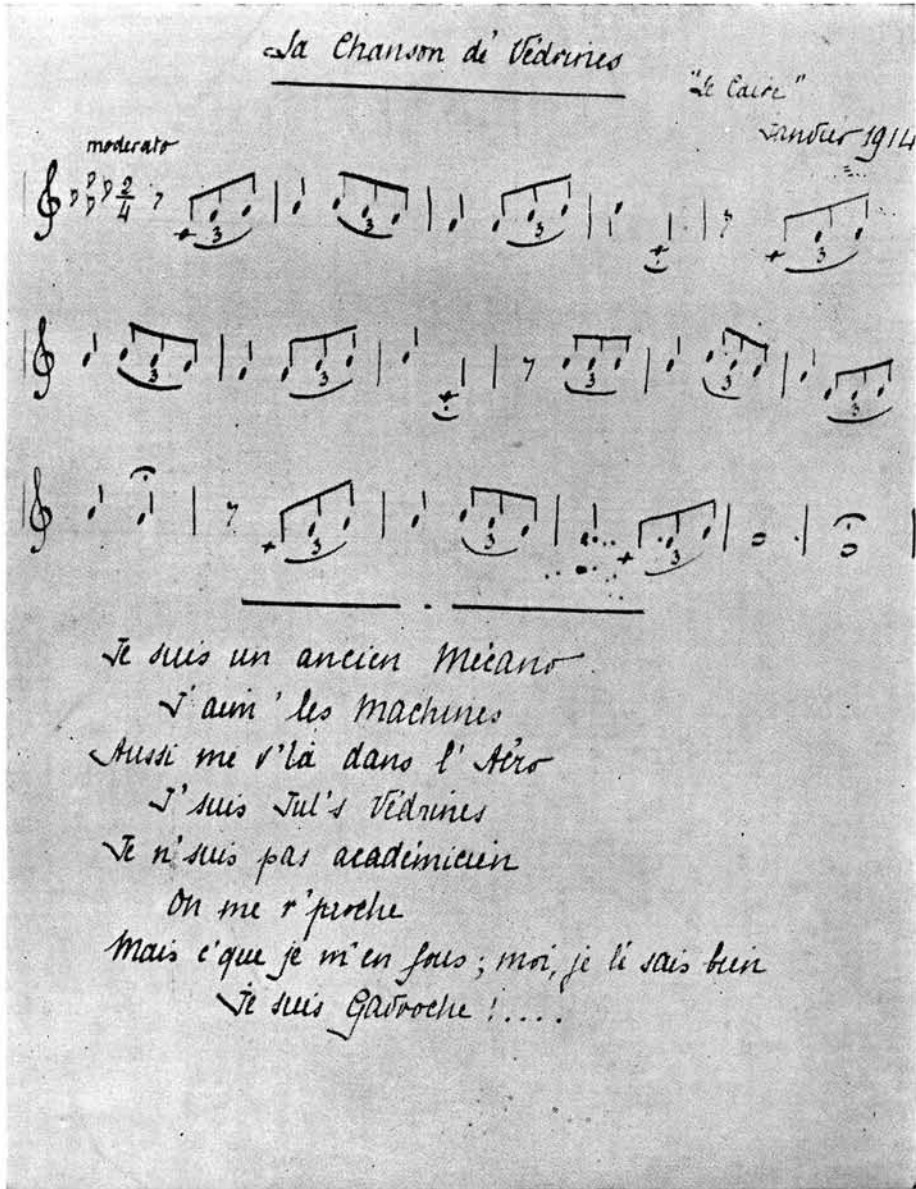 La Chanson de Védrines
"Le Caire"
Janvier 1914
moderato
2
4
3 3 3 3
3 3 3 3 3
3 3 3
Je suis un ancien Mécano
J'aim' les Machines
Aussi me v'là dans l'Aéro
J'suis Jul's Védrines
Je n'suis pas académicien
On me r'proche
Mais c'que je m'en fous ; moi, je le sais bien
Je suis Gavroche !....